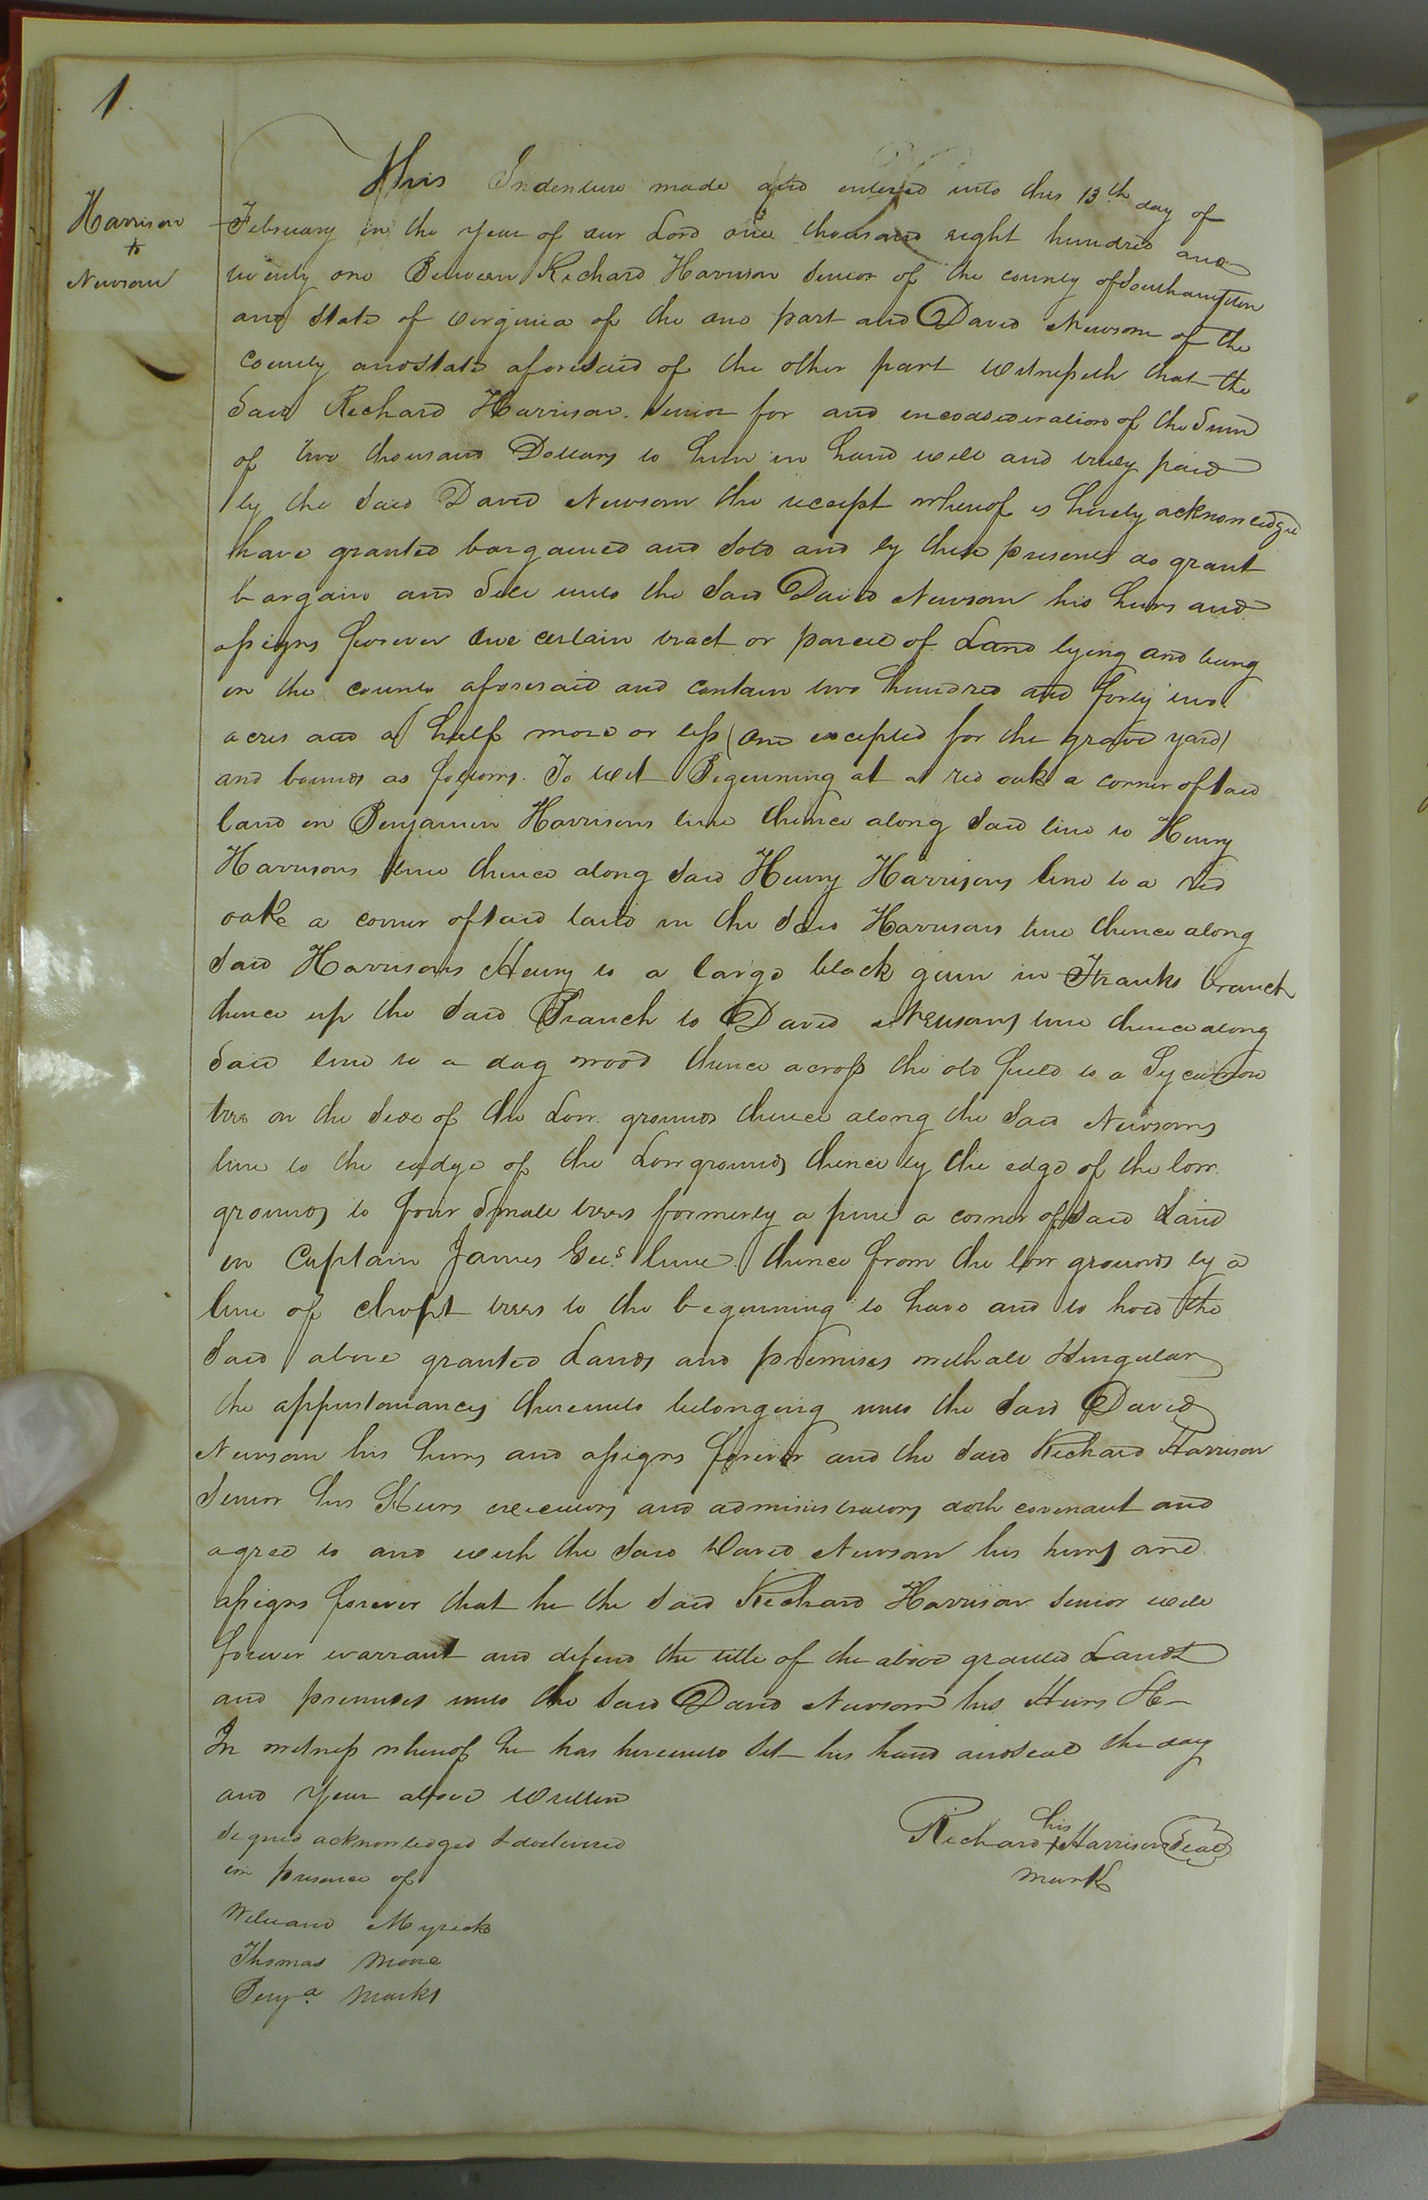 1.
Harrison
to
Newsom
This Indenture made and entered into this 13th day of
February in the year of our Lord one thousand eight hundred and
twenty one Between Richard Harrison Senior of the county of Southampton
and State of Virginia of the one part and David Newsom of the
County and State aforesaid of the other part Witnesseth that the
Said Richard Harrison Senior for and in consideration of the Sum
of two thousand Dollars to him in hand well and truly paid
by the Said David Newsom the receipt whereof is hereby acknowledged
have granted bargained and Sold and by these presents do grant
bargain and Sell unto the Said David Newsom his heirs and
assigns forever one certain tract or parcel of Land lying and being
in the County aforesaid and contain two hundred and forty two
acres and a half more or less (one excepted for the grave yard)
and bounds as follows. To Wit Beginning at a red oak a corner of said
land on Benjamin Harrisons line thence along Said line to Henry
Harrisons line thence along Said Henry Harrisons line to a red
oak a corner of said land in the Said Harrisons line thence along
Said Harrisons Henry to a large black gum in Franks branch
thence up the Said Branch to David Newsoms line thence along
Said line to a dog wood thence across the old field to a Sycamore
tree on the Side of the Low grounds thence along the Said Newsoms
line to the eadge of the Low grounds thence by the edge of the low
grounds to four Small trees formerly a pine a corner of Said Land
in Captain James Gees line thence from the low grounds by a
line of chopt trees to the beginning to have and to hold the
Said above granted Lands and premises with all Singular
the appurtenances thereunto belonging unto the Said David
Newsom his heirs and assigns forever and the Said Richard Harrison
Senior his Heirs executors and administrators doth covenant and
agree to and with the Said David Newsom his heirs and
assigns forever that he the Said Richard Harrison Senior will
forever warrant and defend the title of the above granted Lands
and premises unto the Said David Newsom his Heirs &c
In witness whereof he has hereunto Set his hand and Seal the day
and Year above Written
Signed acknowledged & delivered
in presence of
Richard his + Harrison Seal
mark
Myrick
Thomas Moore
Benja. Marks